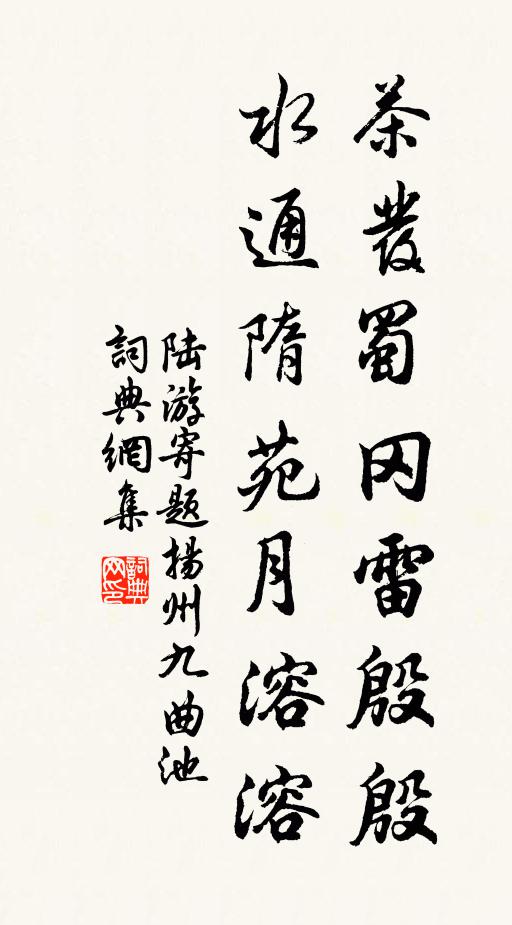 茶發蜀冈雷殷殷
水通隋苑月溶溶
陆游寄题揚州九曲池
詞典網集
詞典网印